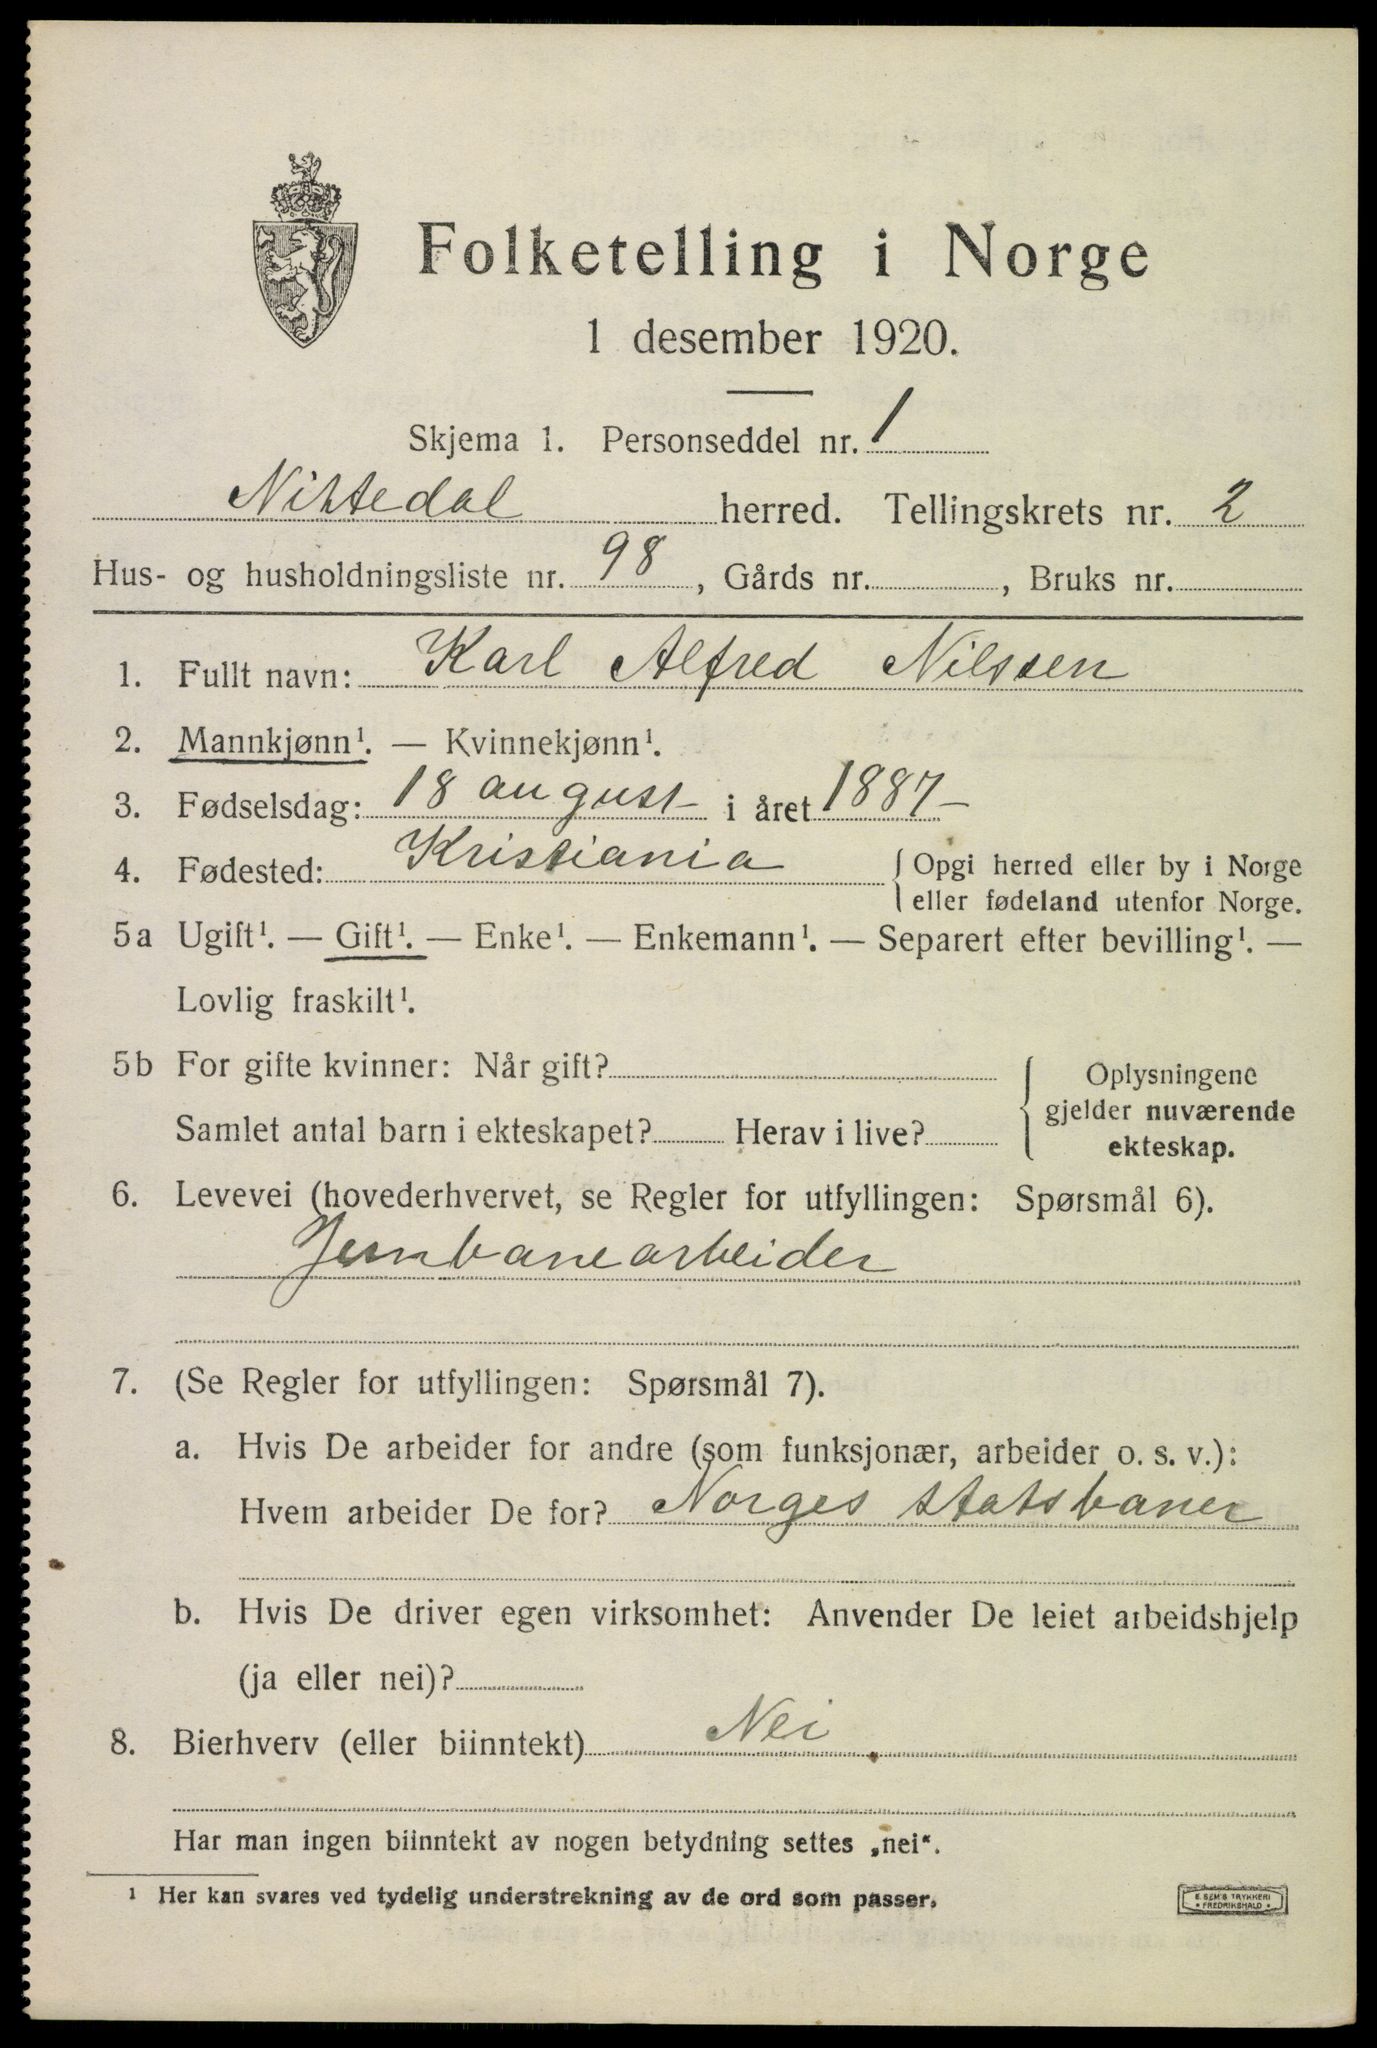 Folketelling i Norge
1 desember 1920.
Skjema 1. Personseddel nr. 1
Nittedal herred. Tellingskrets nr. 2
Hus- og husholdningsliste nr. 98, Gårds nr. , Bruks nr.
1. Fullt navn: Karl Alfred Nilssen
2. Mannkjønn¹. — Kvinnekjønn¹.
3. Fødselsdag: 18 august i året 1887
4. Fødested: Kristiania { Opgi herred eller by i Norge
eller fødeland utenfor Norge.
5a Ugift¹. — Gift¹. — Enke¹. — Enkemann¹. — Separert efter bevilling¹. —
Lovlig fraskilt¹.
5b For gifte kvinner: Når gift? { Oplysningene
gjelder nuværende
Samlet antal barn i ekteskapet? Herav i live? ekteskap.
6. Levevei (hovederhvervet, se Regler for utfyllingen: Spørsmål 6).
Jernbanearbeider
7. (Se Regler for utfyllingen: Spørsmål 7).
a. Hvis De arbeider for andre (som funksjonær, arbeider o. s. v.):
Hvem arbeider De for? Norges statsbaner
b. Hvis De driver egen virksomhet: Anvender De leiet arbeidshjelp
(ja eller nei)?
8. Bierhverv (eller biinntekt) Nei
Har man ingen biinntekt av nogen betydning settes „nei“.
¹ Her kan svares ved tydelig understrekning av de ord som passer.
E. SEM'S TRYKKERI
* FREDRIKSHALD *